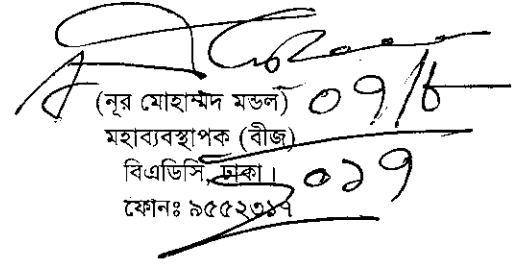 (নূর মোহাম্মদ মন্ডল)
মহাব্যবস্থাপক (বীজ)
বিএডিসি, ঢাকা।
ফোনঃ ৯৫৫২৩১৭